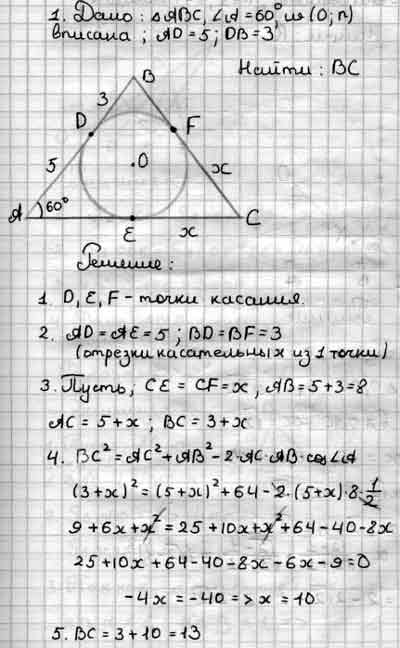 1. Дано: △ABC, ∠A=60° и (O; r)
вписана; AD=5; DB=3
Найти: BC
B
3
D
F
5
O
x
A
60°
C
E
x
Решение:
1. D, E, F - точки касания.
2. AD=AE=5; BD=BF=3
(отрезки касательных из 1 точки)
3. Пусть, CE=CF=x, AB=5+3=8
AC=5+x; BC=3+x
4. BC²=AC²+AB²-2·AC·AB·cos∠A
(3+x)²=(5+x)²+64-2·(5+x)·8·1/2
9+6x+x²=25+10x+x²+64-40-8x
25+10x+64-40-8x-6x-9=0
-4x=-40=>x=10
5. BC=3+10=13